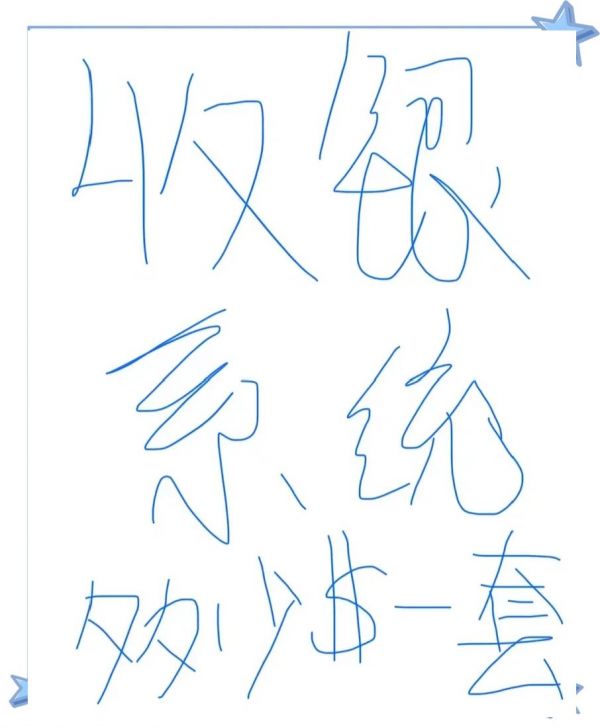 收银
系统
多少$一套